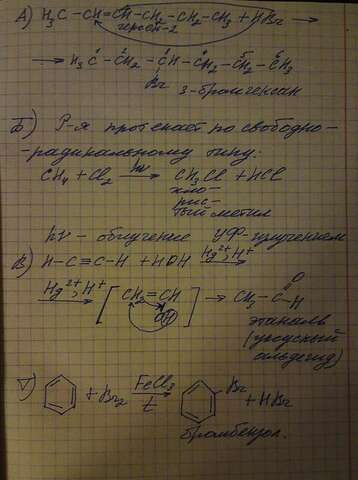 А) H₃C – CH = CH – CH₂ – CH₂ – CH₃ + HBr →
гексен-2
→ H₃C – CH₂ – CH – CH₂ – CH₂ – CH₃
1 2 3 4 5 6
Br 3-бромгексан
Б) Р-я протекает по свободно-
-радикальному типу:
CH₄ + Cl₂ hν→ CH₃Cl + HCl
хло-
рис-
тый метил
hν – облучение УФ-излучением
В) H–C≡C–H + HOH Hg²⁺, H⁺→
Hg²⁺, H⁺→ [ CH₂=CH OH ] → CH₃–C O H
этаналь
(уксусный
альдегид)
Г) + Br₂ FeCl₃ t→ Br + HBr
бромбензол.